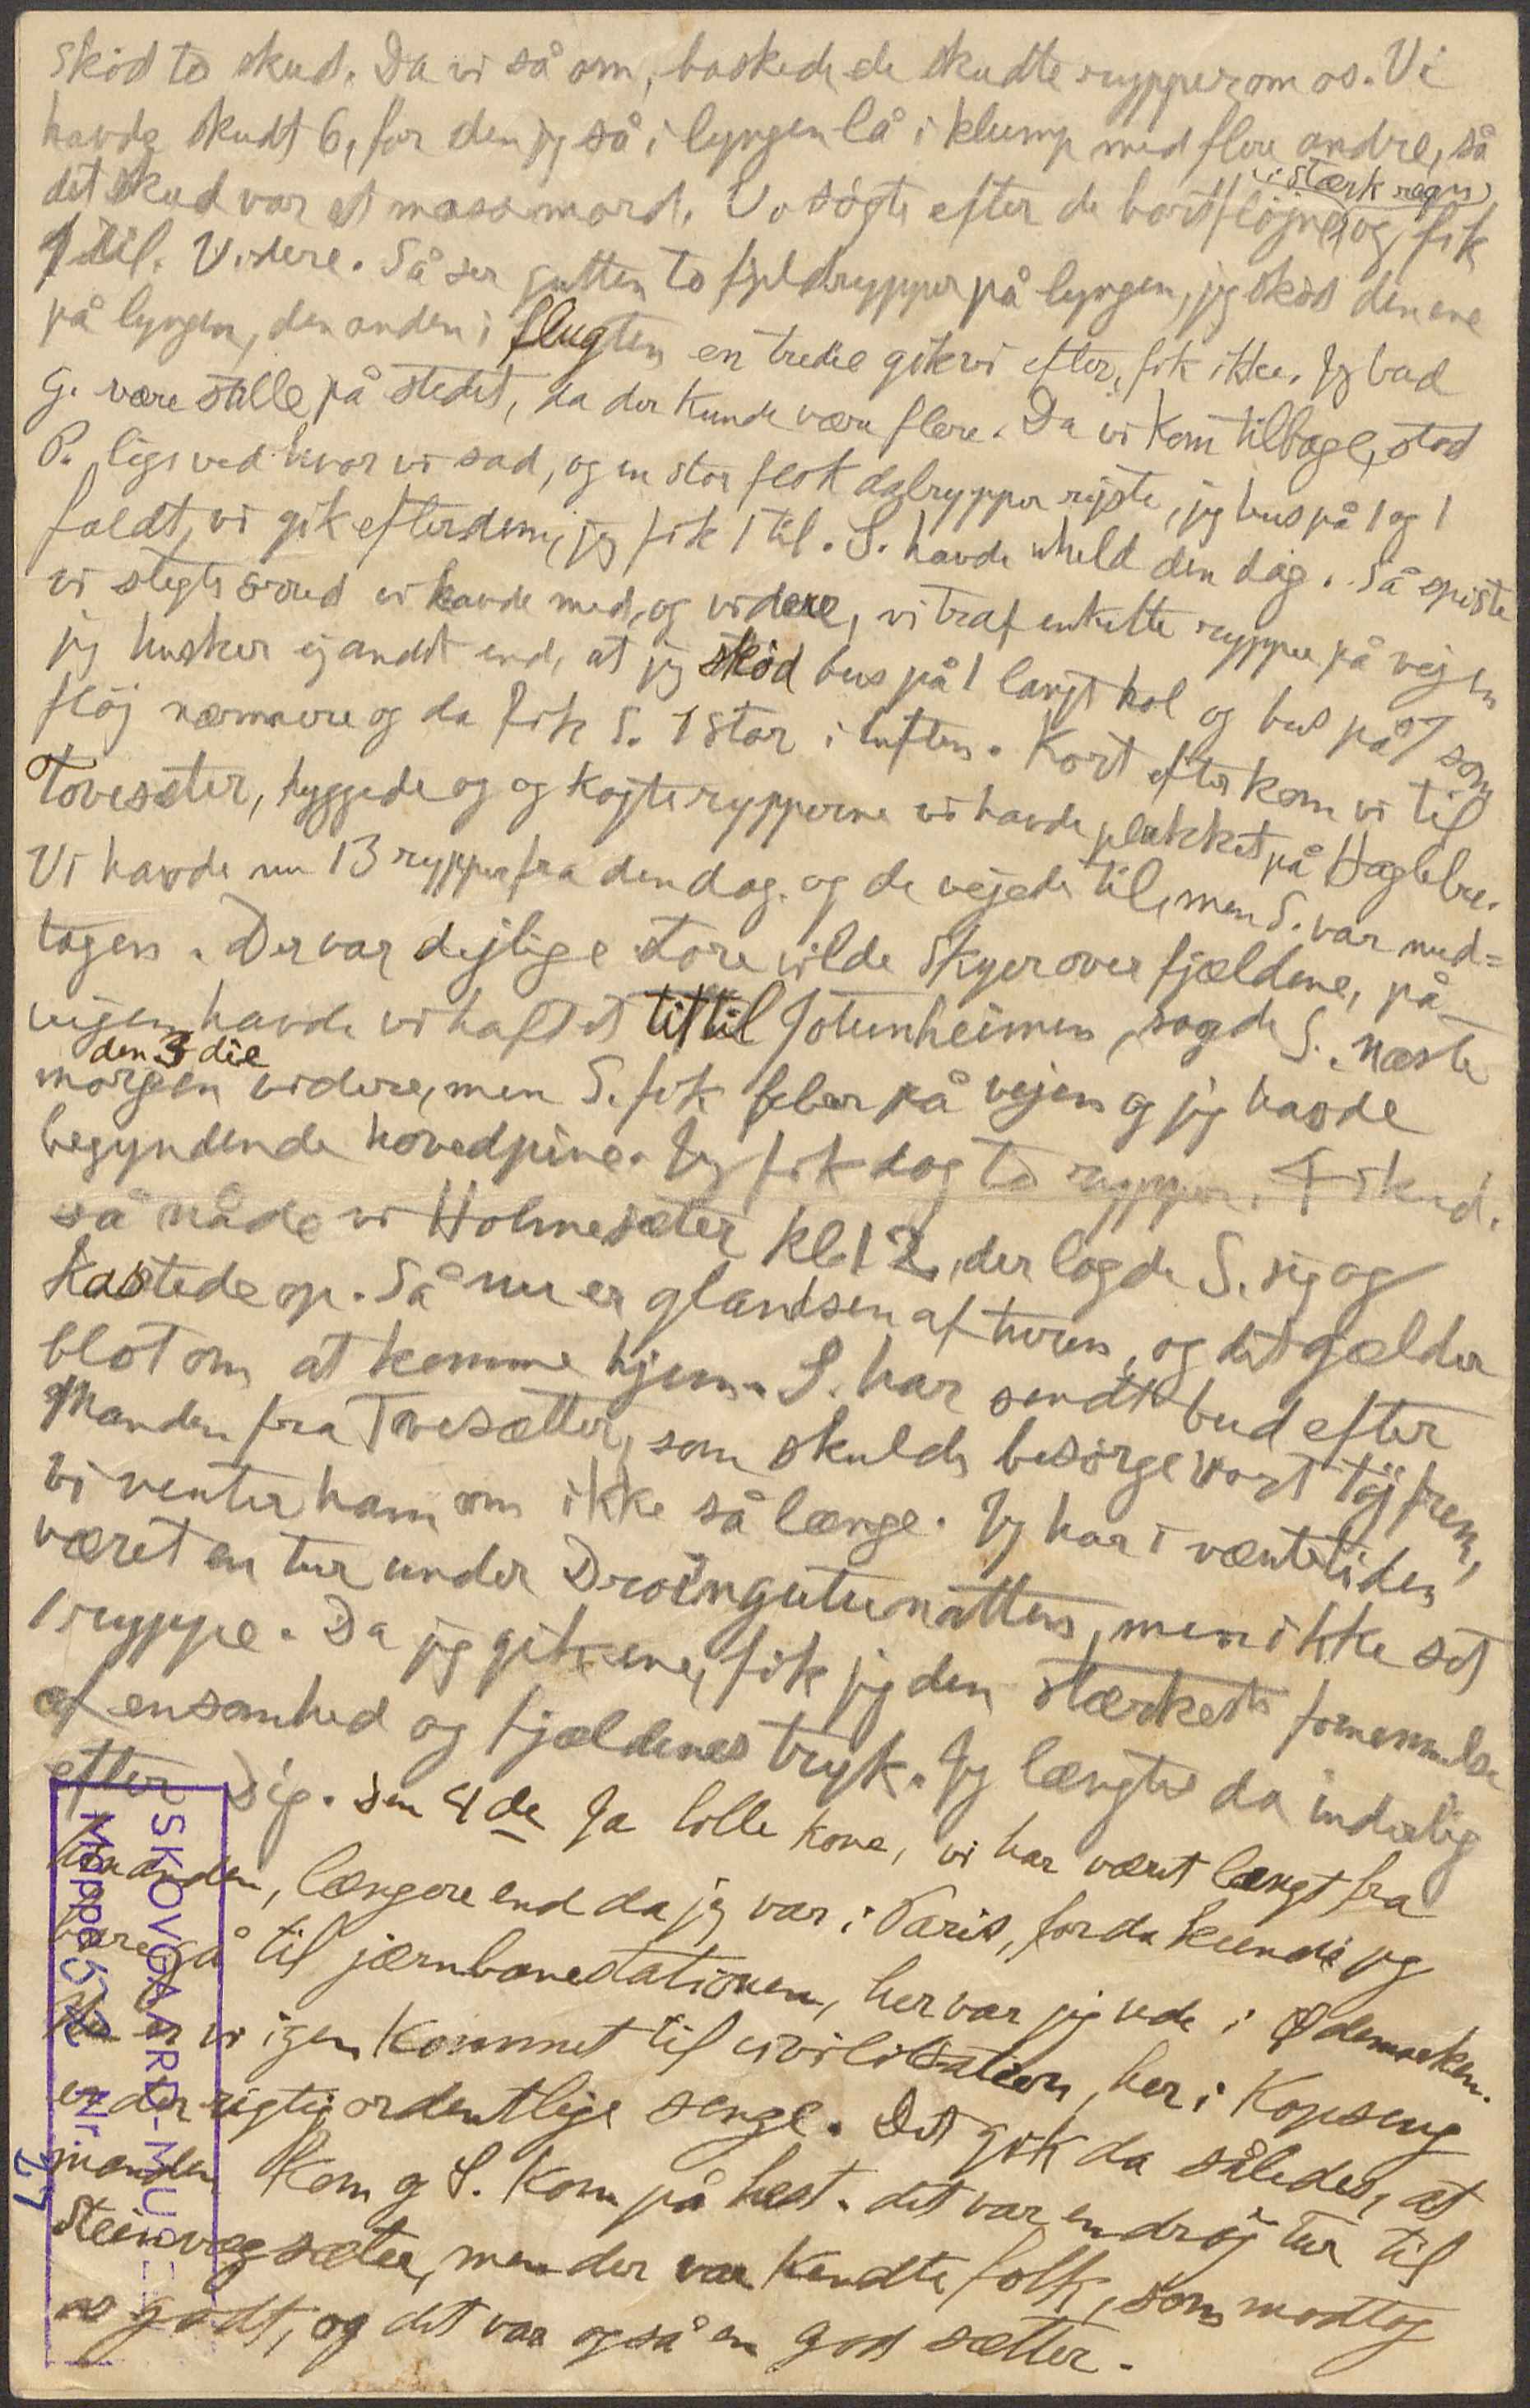 skød to skud. Da vi så om, baskede de skudte rypper om os. Vi
havde skudt 6, for den jeg så i lyngen lå i klump med flere andre, så
det skud var et massemord. Vi søgte efter de bortfløjne, og (i stærk regn) fik
1 til. Videre. Så ser gutten to fjeldrypper på lyngen, jeg skød den ene
på lyngen, den anden i flugten en tredie gik vi efter, fik ikke. Jeg bad
G. være stille på stedet, da der kunde være flere. Da vi kom tilbage, stod
P. lige ved hvor vi sad, og en stor flok dalrypper rejste, jeg bus på 1 og 1
faldt, vi gik efter dem, jeg fik 1 til. S. havde uheld den dag. Så spiste
vi stegte ørred vi havde med, og videre, vi traf enkelte rypper på vejen
jeg husker ej andet end, at jeg skød bus på 1 langt hol og bus på 1 som
fløj nærmere og da fik S. 1 stor i luften. Kort efter kom vi til
Tovesæter, hyggede og og kogte rypperne vi havde plukket på Haglebu.
Vi havde nu 13 rypper fra den dag. og de vejede til, men S. var med=
tagen. Der var dejlige store vilde skyer over fjældene, på
vejen havde vi haft et tit til Jotunheimen, sagde S. Næste
den 3die
morgen videre, men S. fik feber på vejen og jeg havde
begyndende hovedpine. Jeg fik dog to rypper. 4 skud.
så nåde vi Holmesæter kl. 12, der lagde S. sig og
kastede op. Så nu er glandsen af turen, og det gælder
blot om at komme hjem. S. har sendt bud efter
Manden fra Tovesætter, som skulde besørge vort tøj frem,
vi venter ham om ikke så længe. Jeg har i ventetiden
været en tur under, men ikke set
1 rype. Da jeg gik ene, fik jeg den stærkeste fornemmelse
af ensomhed og fjældenes tryk. Jeg længtes da inderlig
efter Dig. den 4de Ja lille kone, vi har været langt fra
hinanden, længere end da jeg var i Paris, for da kunde jeg
bare gå til jærnbanestationen, her var jeg ude i Ødemarken.
Nu er vi igen kommet til civilisation, her i Kopseng
er der rigtig ordentlige senge. Det gik da således, at
manden kom og S. kom på hest. det var en drøj tur til
Steinvegsæter, men der var kendte folk, som modtog
os godt, og det var også en god sætter.
SKOVGAARD-MUSE
Mappe 52 Nr.
27